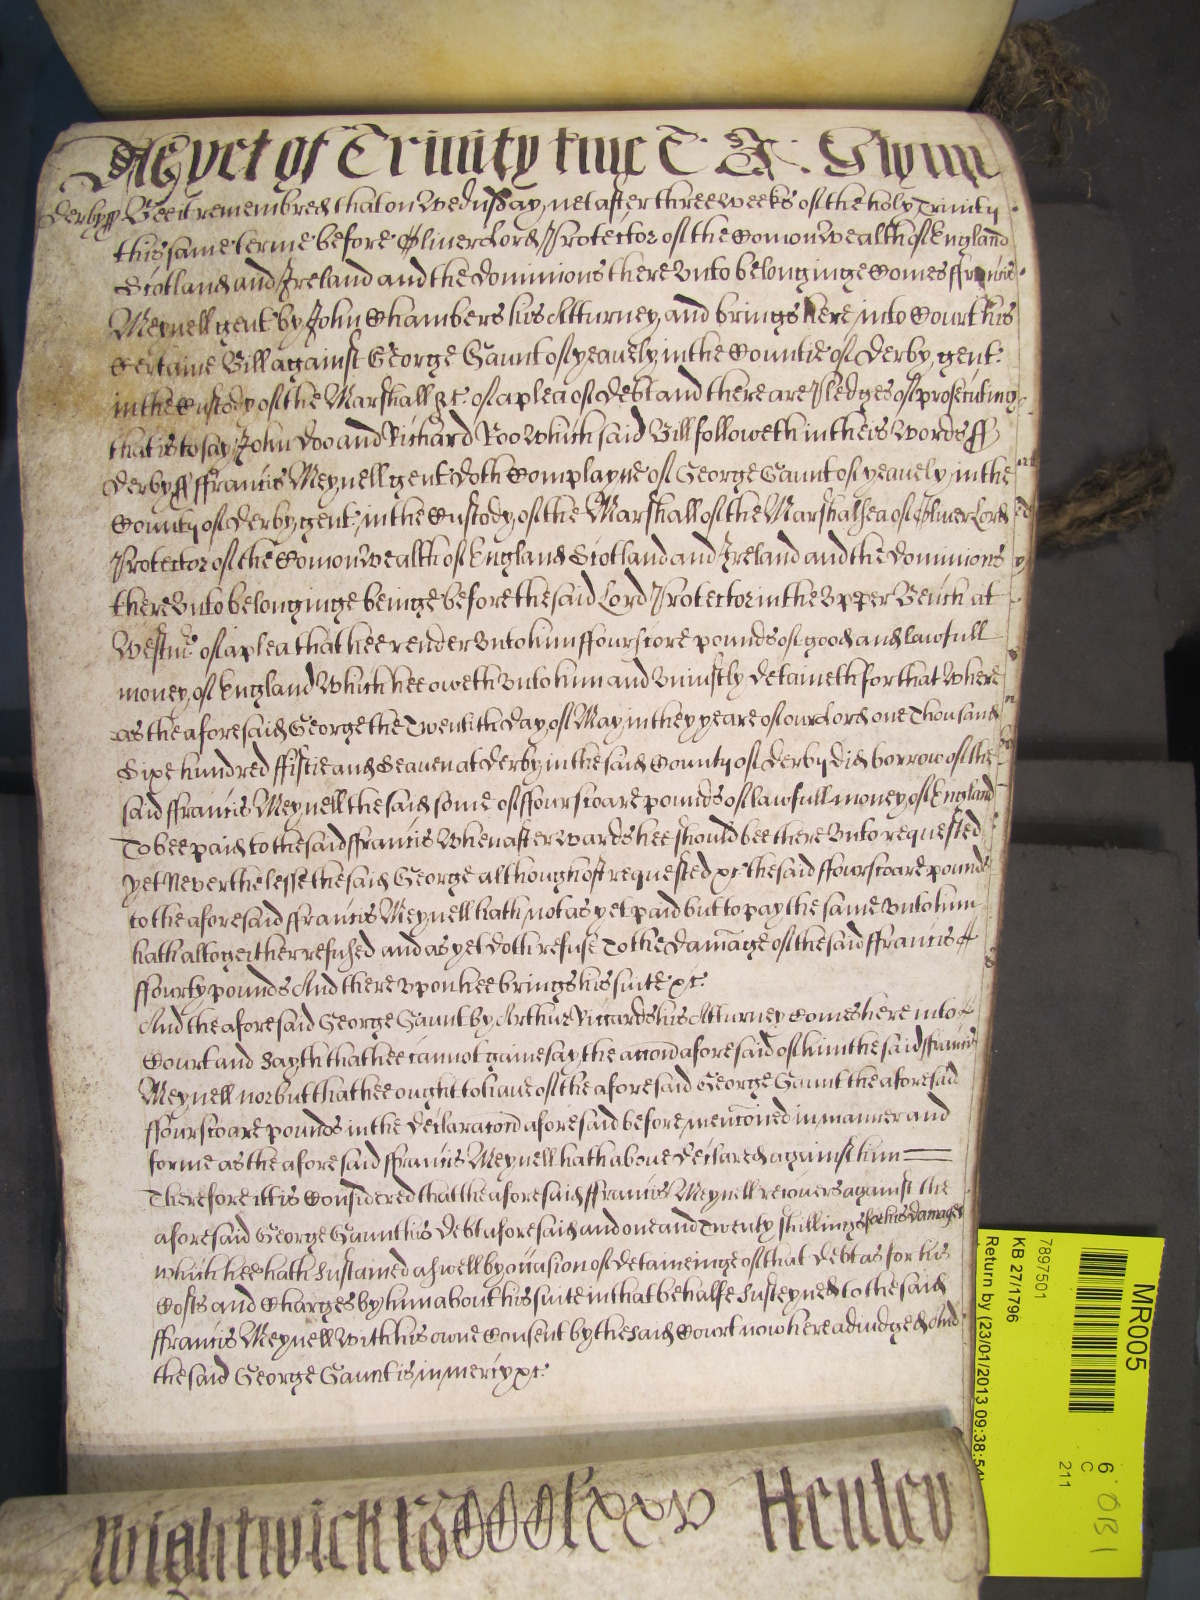 As yet of Trinity tme Glynn
Derby ss Bee it remembred that on Wednsday next after three weeks of the holy Trinity
this same terme before Oliver Lord Protector of the Comonwealth of England
Scotland and Ireland and the Dominions there unto belonginge Comes ffrancis
Meynell gent by John Chambers his Atturney and brings here into Court his
Certaine Bill against George Gaunt of yeavely in the Countie of Derby gent:
in the Custody of the Marshall &c. of a plea of debt and there are Pledges of prosecuting
that is to say John Doo and Richard Roo which said Bill followeth in theis words ss
Derby ss ffrancis Meynell gent doth Complayne of George Gaunt of yeavely in the
County of Derby gent in the Custody of the Marshall of the Marshalsea of Oliver Lord
Protector of the Comonwealth of England Scotland and Ireland and the Dominions
there unto belonginge beinge before the said Lord Protector in the Upper Bench at
Westmr. of a plea that hee render unto him ffourscore pounds of good and lawfull
money of England which hee oweth unto him and uniustly detaineth for that where
as the aforesaid George the Twentith day of May in the yeare of our Lord one Thousand
Sixe hundred ffiftie and Seaven at Derby in the said County of Derby did borrow of the
said ffrancis Meynell the said some of ffourscoare pounds of lawfull money of England
To bee paid to the said ffrancis when afterwards hee should bee there unto requested
yet Neverthelesse the said George although oft requested &c the said ffourscoare pounds
to the aforesaid ffrancis Meynell hath not as yet paid but to pay the same unto him
hath altogeither refused and as yet doth refuse To the damage of the said ffrancis
ffourty pounds And there upon hee brings his suite &c.
And the aforesaid George Gaunt by Arthur Riccards his Atturney Comes here into
Court and Sayth that hee cannot gainesay the accon aforesaid of him the said ffrancis
Meynell nor but that hee ought to have of the aforesaid George Gaunt the aforesaid
ffourscoare pounds in the declaracon aforesaid before mencioned in manner and
forme as the aforesaid ffrancis Meynell hath above declared against him
Therefore itt is Considered that the aforesaid ffrancis Meynell recovers against the
aforesaid George Gaunt his debt aforesaid and one and Twenty shillings for his damages
which hee hath Sustained aswell by occasion of detaineinge of that debt as for his
Costs and Charges by him about his suite in that behalfe Susteyned to the said
ffrancis Meynell with his owne Consent by the said Court now here adiudged And
the said George Gaunt is in mercy &c.
Wightwick Henley
MR005
7897501
KB 27/1796
Return by (23/01/2013 09:38:54)
6
C
211